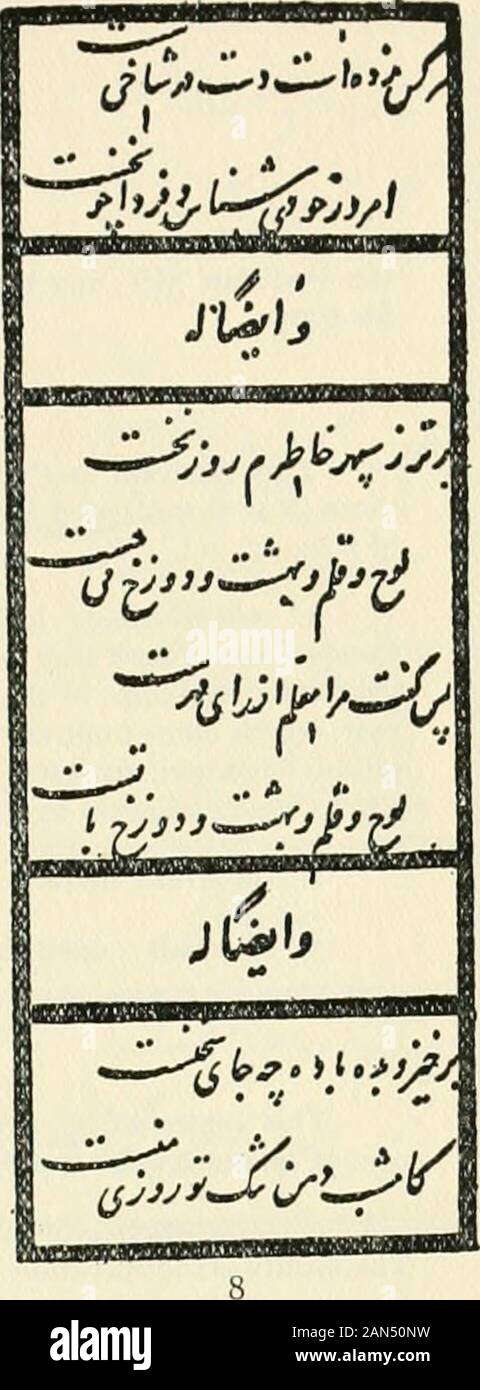 هر کس زده است دست در شاخی سست
امروز چو دی شناس و فردا چو نخست
وایضاً له
برتر ز سپهر خاطرم روز نخست
لوح و قلم و بهشت و دوزخ می جست
پس گفت مرا معلم از رای درست
لوح و قلم و بهشت و دوزخ با تست
وایضاً له
برخیز و بده باده چه جای سخنست
کامشب دهن تنگ تو روزی منست
8
alamy
Image ID: 2AN50NW
www.alamy.com